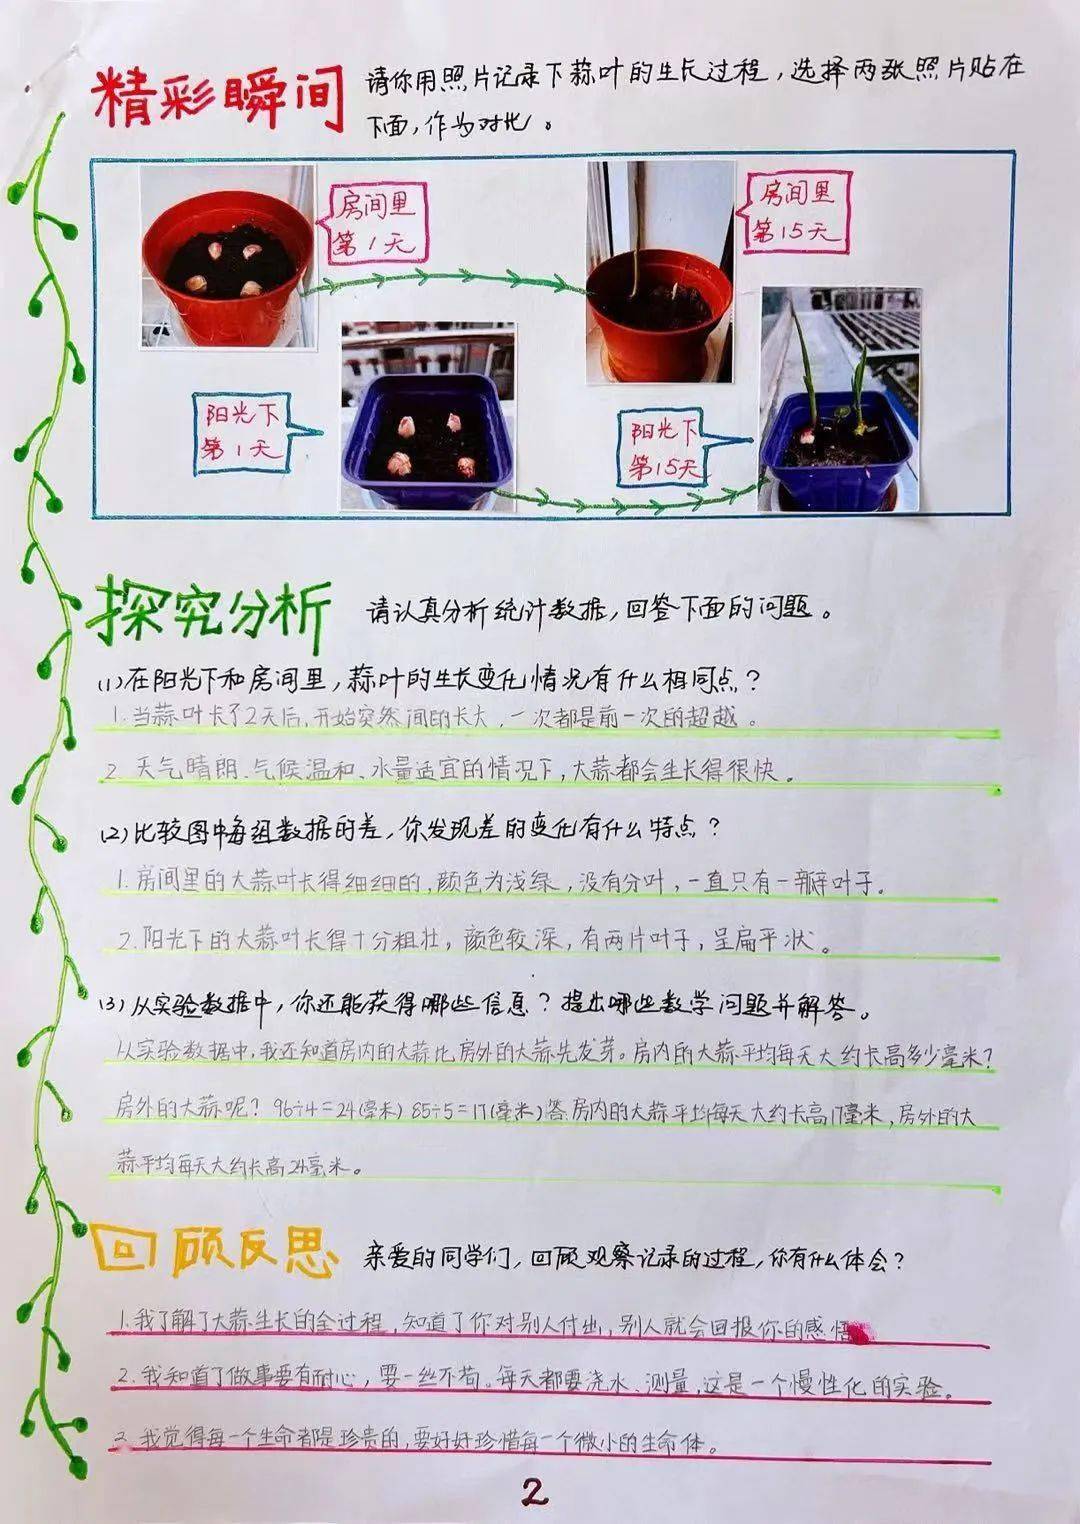 精彩瞬间
请你用照片记录下蒜叶的生长过程，选择两张照片贴在
下面，作为对比。
房间里
第1天
房间里
第15天
阳光下
第1天
阳光下
第15天
探究分析
请认真分析统计数据，回答下面的问题。
(1)在阳光下和房间里，蒜叶的生长变化情况有什么相同点？
1.当蒜叶长了2天后，开始突然间的长大，一次都是前一次的超越。
2.天气晴朗、气候温和、水量适宜的情况下，大蒜都会生长得很快。
(2)比较图中每组数据的差，你发现差的变化有什么特点？
1.房间里的大蒜叶长得细细的，颜色为浅绿，没有分叶，一直只有一瓣叶子。
2.阳光下的大蒜叶长得十分粗壮，颜色较深，有两片叶子，呈扁平状。
(3)从实验数据中，你还能获得哪些信息？提出哪些数学问题并解答。
从实验数据中，我还知道房内的大蒜比房外的大蒜先发芽。房内的大蒜平均每天大约长高多少毫米？
房外的大蒜呢？96÷4=24(毫米) 85÷5=17(毫米)答：房内的大蒜平均每天大约长高17毫米，房外的大
蒜平均每天大约长高24毫米。
回顾反思
亲爱的同学们，回顾观察记录的过程，你有什么体会？
1.我了解了大蒜生长的全过程，知道了你对别人付出，别人就会回报你的感悟
2.我知道了做事要有耐心，要一丝不苟。每天都要浇水、测量，这是一个慢性化的实验。
3.我觉得每一个生命都是珍贵的，要好好珍惜每一个微小的生命体。
2